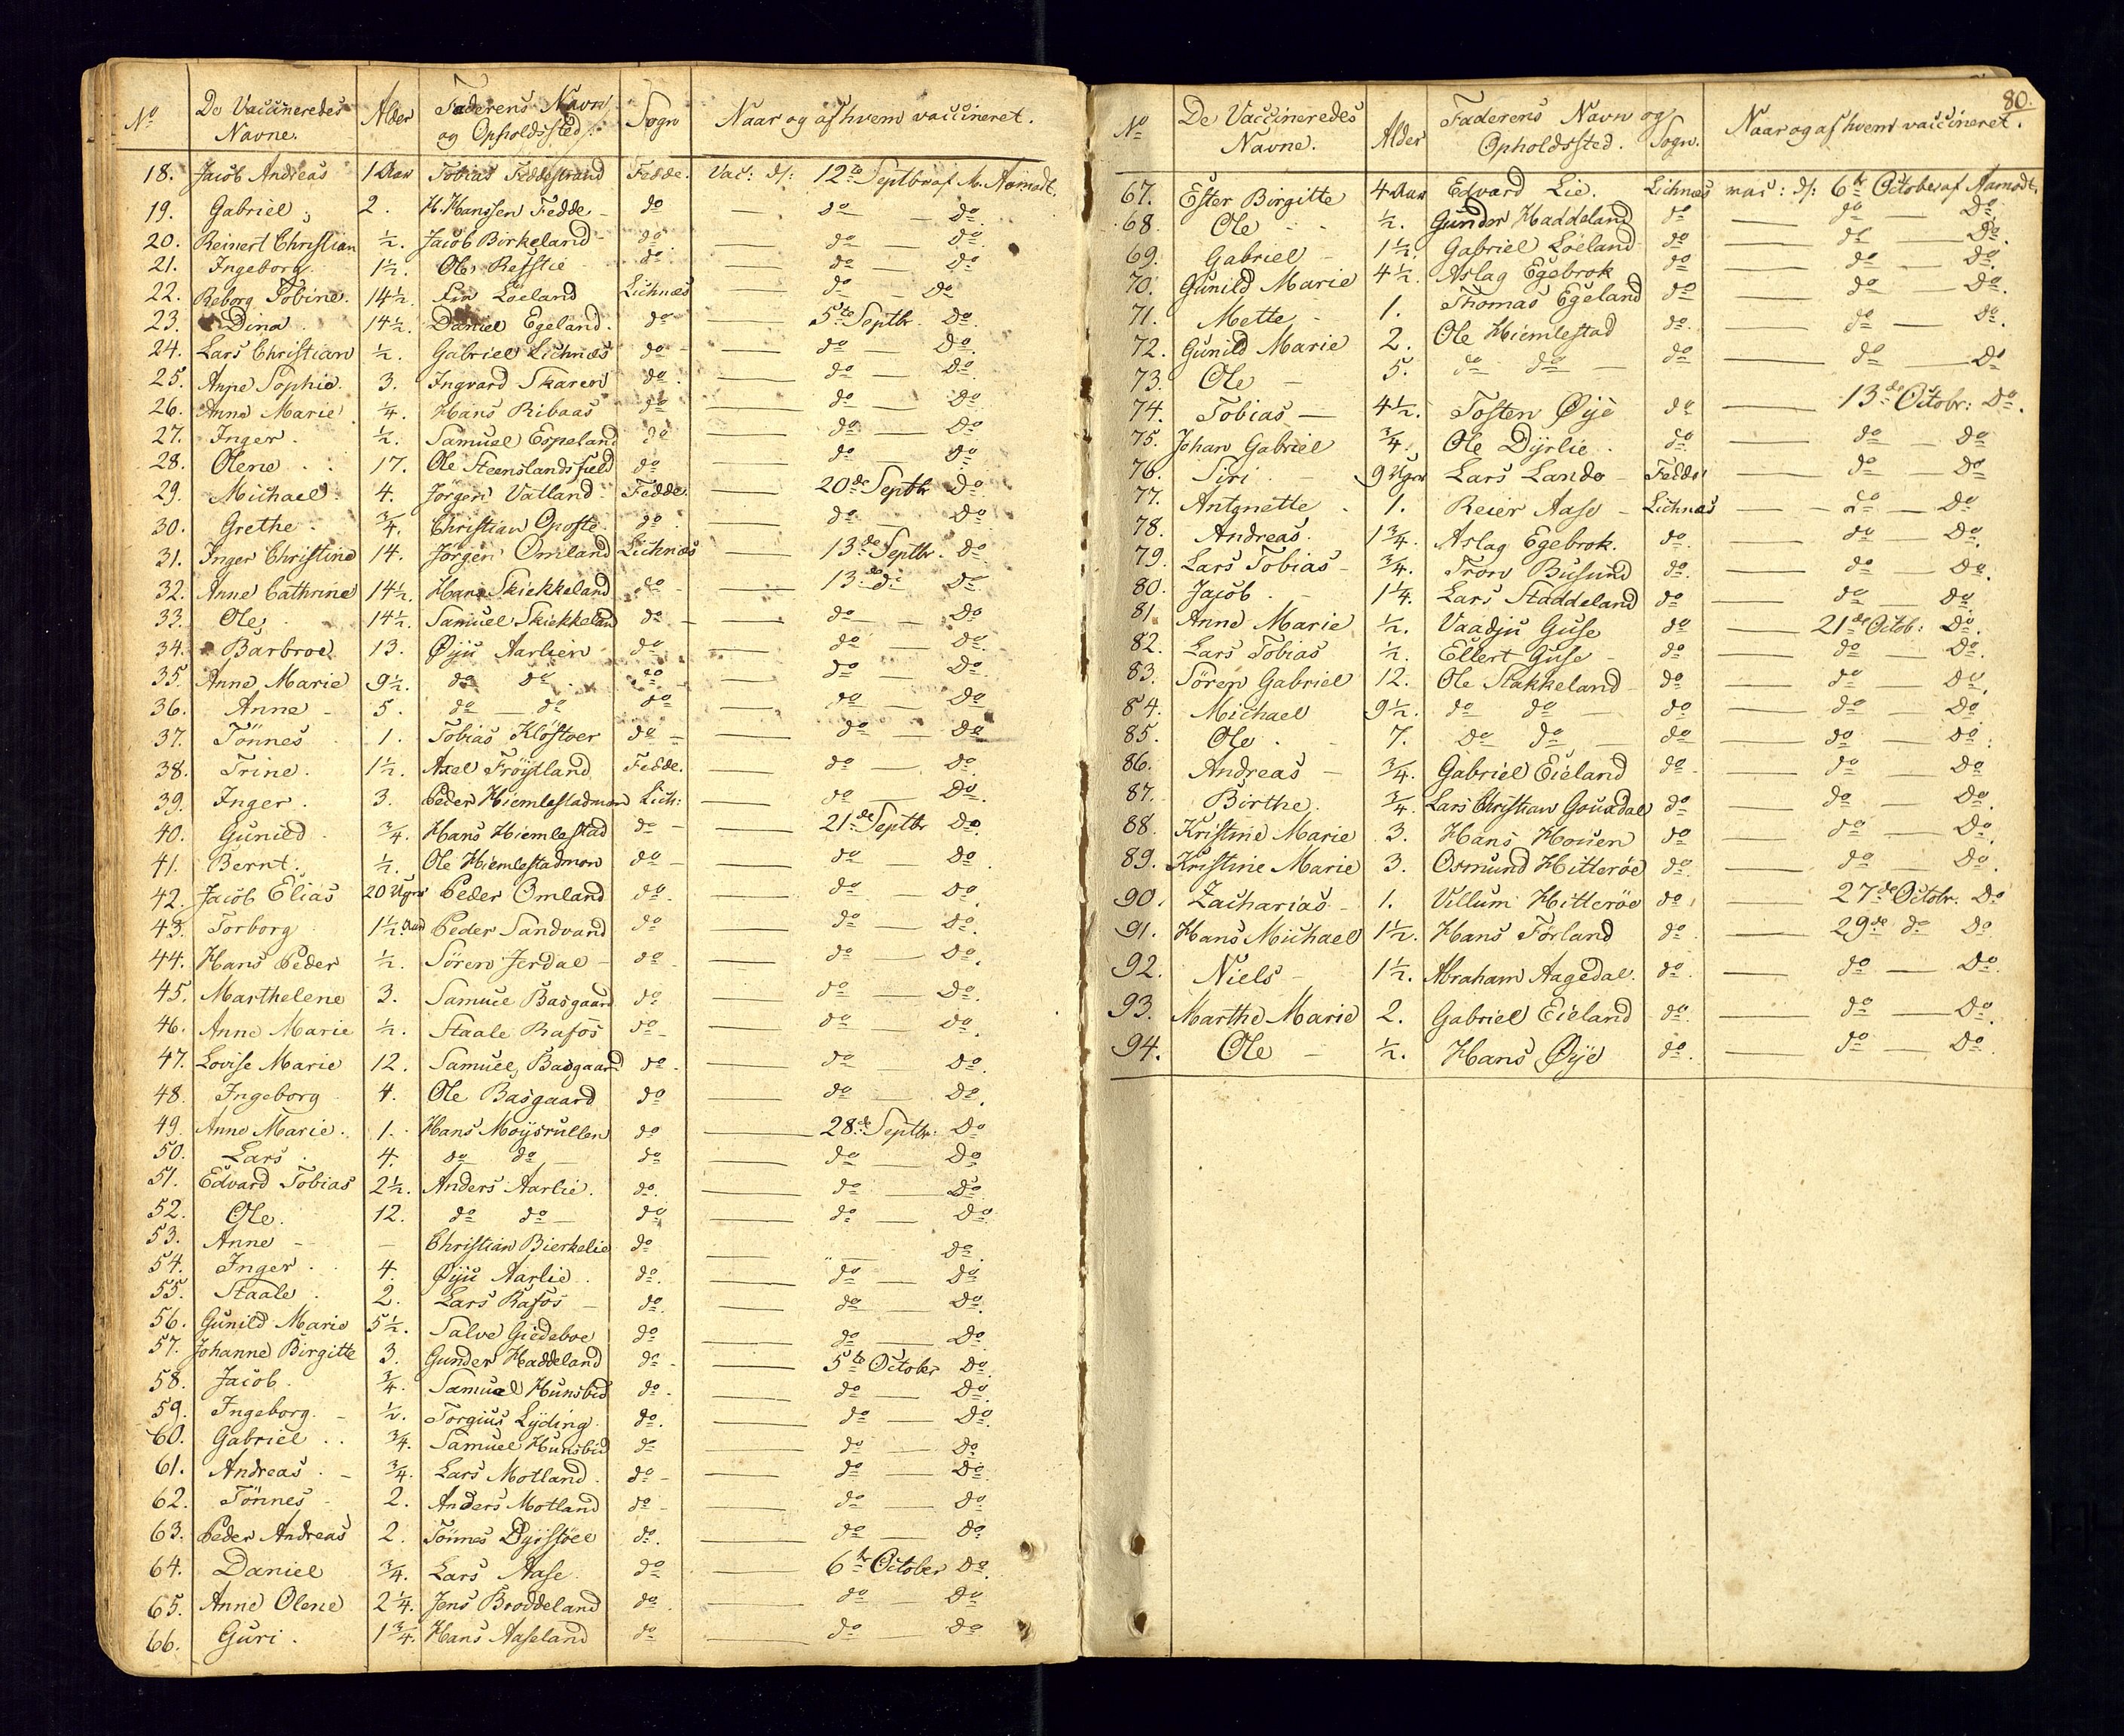 No De Vaccineredes Navne. Alder Faderens Navn og Opholdssted. Sogn Naar og af hvem vaccineret.
18. Jacob Andreas 1 Aar Tobias Feddestrand Fedde. Vac: d: 12te Septbr af M. Aamodt.
19. Gabriel 2. H. Hanssen Fedde do — do — Do.
20. Reinert Christian ½. Jacob Birkeland do — do — Do.
21. Ingeborg 1½. Ole Refstie do — do — Do.
22. Reborg Tobine. 14½. Fin Löeland Lichnæs — do — Do
23. Dina. 14½. Daniel Egeland. do — 5te Septbr. Do.
24. Lars Christian ½. Gabriel Lichnæs do — do — Do.
25. Anne Sophie. 3. Ingvard Skaren do — do — Do.
26. Anne Marie. ¼. Hans Ribaas do — do — Do.
27. Inger. ½. Samuel Espeland do — do — Do
28. Olene 17. Ole Steenslandsfield do — do — Do
29. Michael 4. Jörgen Vatland Fedde. — 20de Septbr Do.
30. Grethe. ¾. Christian Opofte do — do — Do.
31. Inger Christine 14. Jörgen Omland Lichnæs — 13de Septbr. Do.
32. Anne Cathrine 14½. Hans Skiekkeland do — 13de do Do.
33. Ole 14½. Samuel Skiekkeland do — do — Do
34. Barbroe 13. Øyu Aarlien do — do — Do.
35. Anne Marie 9½. do do do — do — Do.
36. Anne 5. do — do do — do — Do
37. Tönnes 1. Tobias Klöstver do — do — Do
38. Trine. 1½. Axel Fröysland Fedde. — do — Do.
39. Inger. 3. Peder Hiemlestadmoen Lich: — do — Do.
40. Gunild ¾. Hans Hiemlestad do — 21de Septbr Do.
41. Bernt. ½. Ole Hiemlestadmon do — do — Do
42. Jacob Elias 20 Ugrs Peder Omland do — do — Do.
43. Torborg 1½ Aar Peder Sandvand do — do — Do.
44. Hans Peder ½. Sören Jerdal do — do — Do.
45. Marthelene 3. Samuel Basgaard do — do — Do.
46. Anne Marie ½. Staale Rafos do — do — Do.
47. Lovise Marie 12. Samuel Basgaard do — do — Do.
48. Ingeborg 4. Ole Basgaard do — do — Do.
49. Anne Marie. 1. Hans Moysrullen do — 28de Septbr. Do
50. Lars 4. do do do — do — Do
51. Edvard Tobias 2½. Anders Aarlie. do. — do — Do
52. Ole. 12. do do do — do — Do
53. Anne — Christian Bierkelie do — „ — Do.
54. Inger 4. Øyu Aarlie. do. — do — Do
55. Staale 2. Lars Rafos do. — do — Do.
56. Gunild Marie 5½. Salve Giedeboe do — do — Do.
57. Johanne Birgitte 3. Gunder Haddeland do — 5te October Do.
58. Jacob. ¾. Samuel Hunsbid do. — do — Do.
59. Ingeborg. ½. Torgius Lyding do. — do — Do.
60. Gabriel ¾. Samuel Hunsbid do — do — Do.
61. Andreas. ¾. Lars Motland. do — do — Do.
62. Tönnes 2. Anders Motland do — do — Do
63. Peder Andreas 2. Tönnes Dyrstöel do. — do — Do
64. Daniel ¾. Lars Aase do — 6te October Do
65. Anne Olene 2¼. Jens Broddeland do. — do — Do
66. Guri. 1¾. Hans Aaseland do — do — Do
80.
No De Vaccineredes Navne. Alder Faderens Navn og Opholdssted. Sogn. Naar og af hvem vaccineret.
67. Ester Birgitte 4 Aar Edvard Lie. Lichnæs vac: d: 6te October af Aamodt.
68. Ole ½. Gunder Haddeland do — do — Do.
69. Gabriel 1½. Gabriel Löeland do — do — Do.
70. Gunild Marie 4½. Aslag Egebrok do — do — Do.
71. Mette 1. Thomas Egeland do — do — Do.
72. Gunild Marie 2. Ole Hiemlestad do. — do — Do.
73. Ole 5. do do do — do — Do
74. Tobias 4½. Tosten Øye do — 13de Octobr: Do.
75. Johan Gabriel ¾. Ole Dyrlie. do — do — Do
76. Siri 9 Ugrs Lars Lande Fedde — do — Do
77. Antonette 1. Reier Aase Lichnæs — do — Do
78. Andreas. 1¾. Aslag Egebrok. do. — do — Do.
79. Lars Tobias ¾. Tron Busund do. — do — Do.
80. Jacob 1¼. Lars Staddeland do — do — Do.
81. Anne Marie ½. Vaadju Guse do — 21de Octob: Do.
82. Lars Tobias ½. Ellert Guse do — do — Do.
83. Sören Gabriel 12. Ole Stakkeland do — do — Do.
84. Michael 9½. do do do — do — Do.
85. Ole 7. Do do do — do — Do.
86. Andreas ¾. Gabriel Eieland do — do — Do
87. Birthe. ¾. Lars Christian Gousdal do — do — Do.
88. Kristine Marie 3. Hans Houen do — do — Do.
89. Kristine Marie 3. Osmund Hitteröe do — do — Do.
90. Zacharias 1. Villum Hitteröe do — 27de Octobr. Do
91. Hans Michael 1½. Hans Förland do — 29de do Do
92. Niels 1½. Abraham Aagedal. do. — do — Do.
93. Marthe Marie 2. Gabriel Eieland do. — do — Do.
94. Ole ½. Hans Øye do. — do — Do.